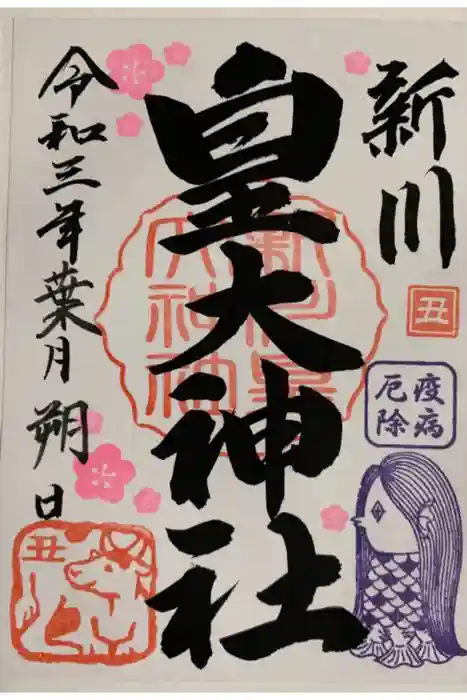 新川
皇大神社
令和三年葉月朔日
丑
疫病
厄除
丑